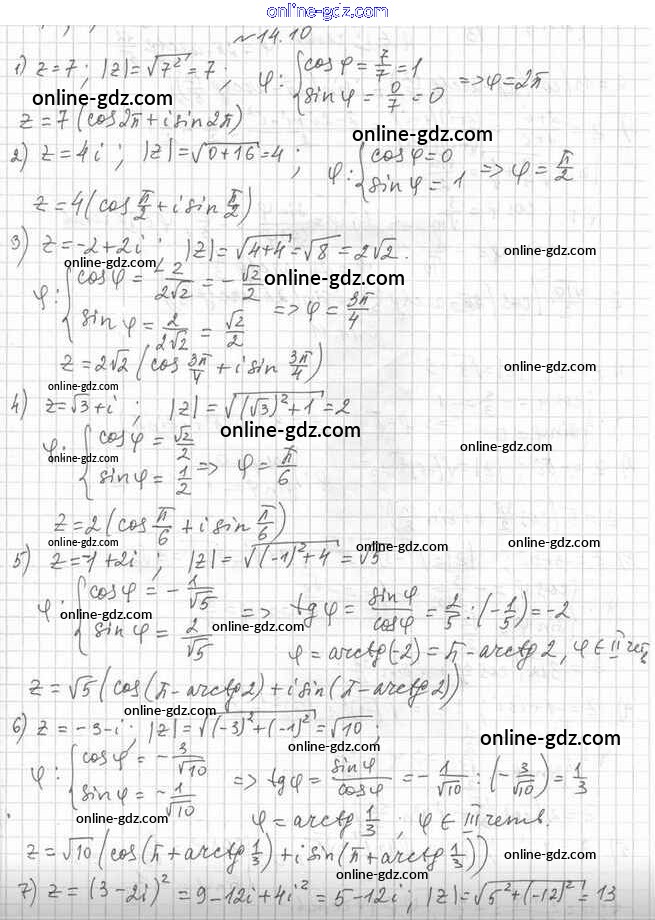 online-gdz.com
№14.10
1) z=7; |z|=√7² = 7; φ: {cosφ = 7/7 = 1
{sinφ = 0/7 = 0 => φ=2π
online-gdz.com
z=7(cos2π+isin2π)
online-gdz.com
2) z=4i; |z|=√0+16=4; φ: {cosφ=0
{sinφ=1 => φ=π/2
z=4(cos π/2 + i sin π/2)
3) z=-2+2i |z|=√4+4=√8=2√2.
online-gdz.com
online-gdz.com
online-gdz.com
φ: {cosφ = 2/2√2 = -√2/2
{sinφ = 2/2√2 = √2/2 => φ=3π/4
z=2√2(cos 3π/4 + i sin 3π/4)
online-gdz.com
online-gdz.com
4) z=√3+i; |z|=√(√3)²+1=2
online-gdz.com
φ: {cosφ = √2/2
{sinφ = 1/2 => φ=π/6
online-gdz.com
online-gdz.com
z=2(cos π/6 + i sin π/6)
online-gdz.com
online-gdz.com
5) z=-1+2i; |z|=√(-1)²+4=√5
φ: {cosφ = -1/√5
{sinφ = 2/√5 => tgφ = sinφ/cosφ = 2/5:(-1/5)=-2
online-gdz.com
online-gdz.com
φ=arctg(-2)=π-arctg2, φ∈II четв
z=√5(cos(π-arctg2)+isin(π-arctg2))
online-gdz.com
online-gdz.com
6) z=-3-i; |z|=√(-3)²+(-1)²=√10;
online-gdz.com
online-gdz.com
φ: {cosφ = -3/√10
{sinφ = -1/√10 => tgφ = sinφ/cosφ = -1/√10:(-3/√10)=1/3
online-gdz.com
online-gdz.com
φ=arctg 1/3; φ∈III четв.
z=√10(cos(π+arctg 1/3)+isin(π+arctg 1/3))
online-gdz.com
7) z=(3-2i)²=9-12i+4i²=5-12i; |z|=√5²+(-12)²=13
online-gdz.com
online-gdz.com